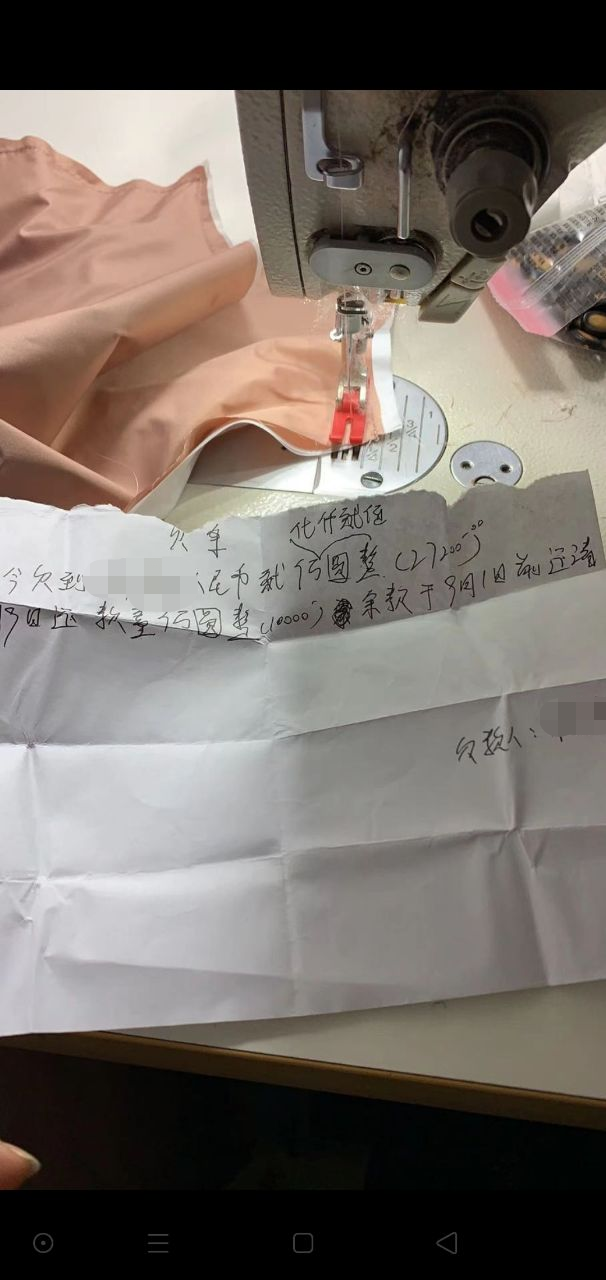 欠条
化仟就佰
今欠到 民币就仿圆整 (27200.00)
19日还款壹仿圆整(10000) 余款于9月1日前还清
欠款人: